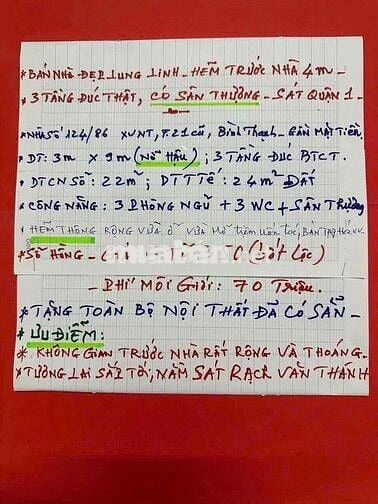 * BÁN NHÀ ĐẸP LUNG LINH - HẺM TRƯỚC NHÀ 4m -
* 3 TẦNG ĐÚC THẬT, CÓ SÂN THƯỢNG - SÁT QUẬN 1 -
* NHÀ SỐ 124/86 XVNT, F.21 CŨ, BÌNH THẠNH - GẦN MẶT TIỀN.
* DT: 3m x 9m (NỞ HẬU); 3 TẦNG ĐÚC BTCT.
* DTCN SỔ: 22m²; DT TTẾ: 24m² ĐẤT
* CÔNG NĂNG: 3 PHÒNG NGỦ + 3 WC + SÂN THƯỢNG
* HẺM THÔNG RỘNG VỪA Ở VỪA MỞ TIỆM UỐN TÓC, BÁN TẠP HÓA
* SỔ HỒNG - (bớt Lộc)
muaban
- PHÍ MÔI GIỚI: 70 TRIỆU.
* TẶNG TOÀN BỘ NỘI THẤT ĐÃ CÓ SẴN -
* ƯU ĐIỂM:
* KHÔNG GIAN TRƯỚC NHÀ RẤT RỘNG VÀ THOÁNG.
* TƯƠNG LAI SẮP TỚI, NẰM SÁT RẠCH VĂN THÁNH